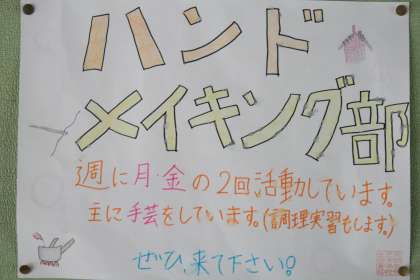 ハンド
メイキング部
週に月・金の2回活動しています。
主に手芸をしています。(調理実習もします。)
ぜひ、来て下さい!